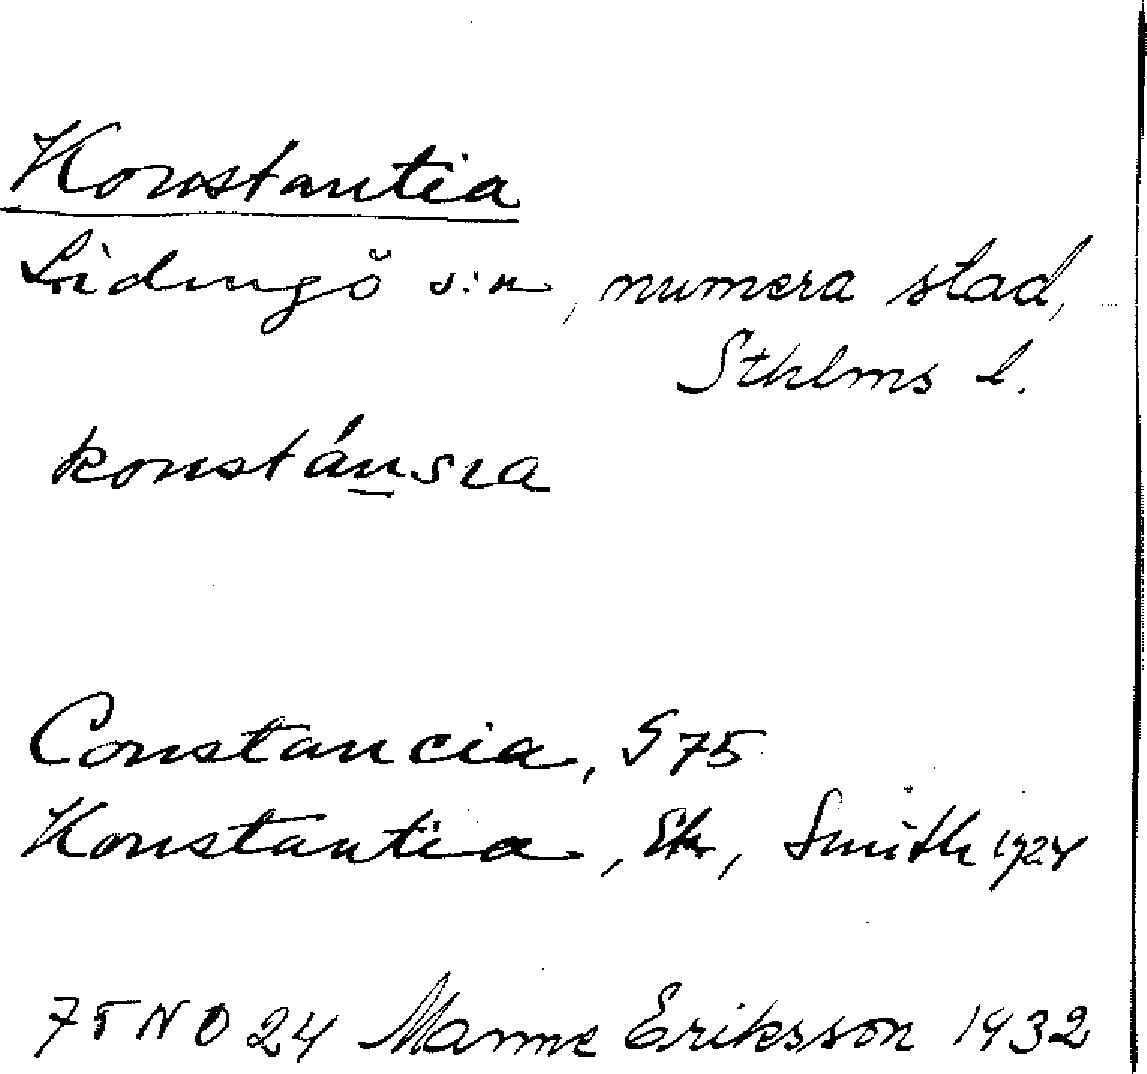 Konstantia
Lidingö s:n, numera stad,
Sthlms l.
konstánsıa
Constancia, S 75
Konstantia, Ek, Smith 1924
75 NO 24 Manne Eriksson 1932